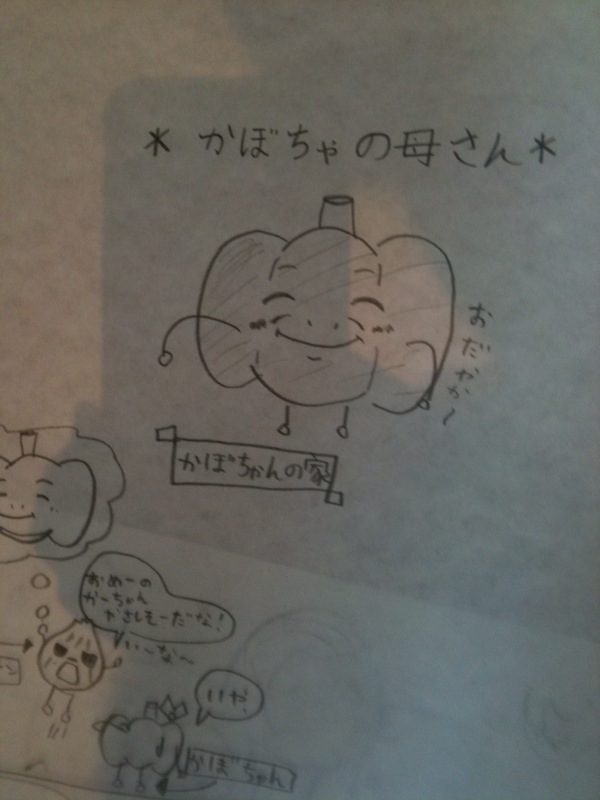 ＊ かぼちゃの母さん ＊
おだやか〜
かぼちゃんの家
おめーの
かーちゃん
やさしそーだな!
い〜な〜
いや
かぼちゃん